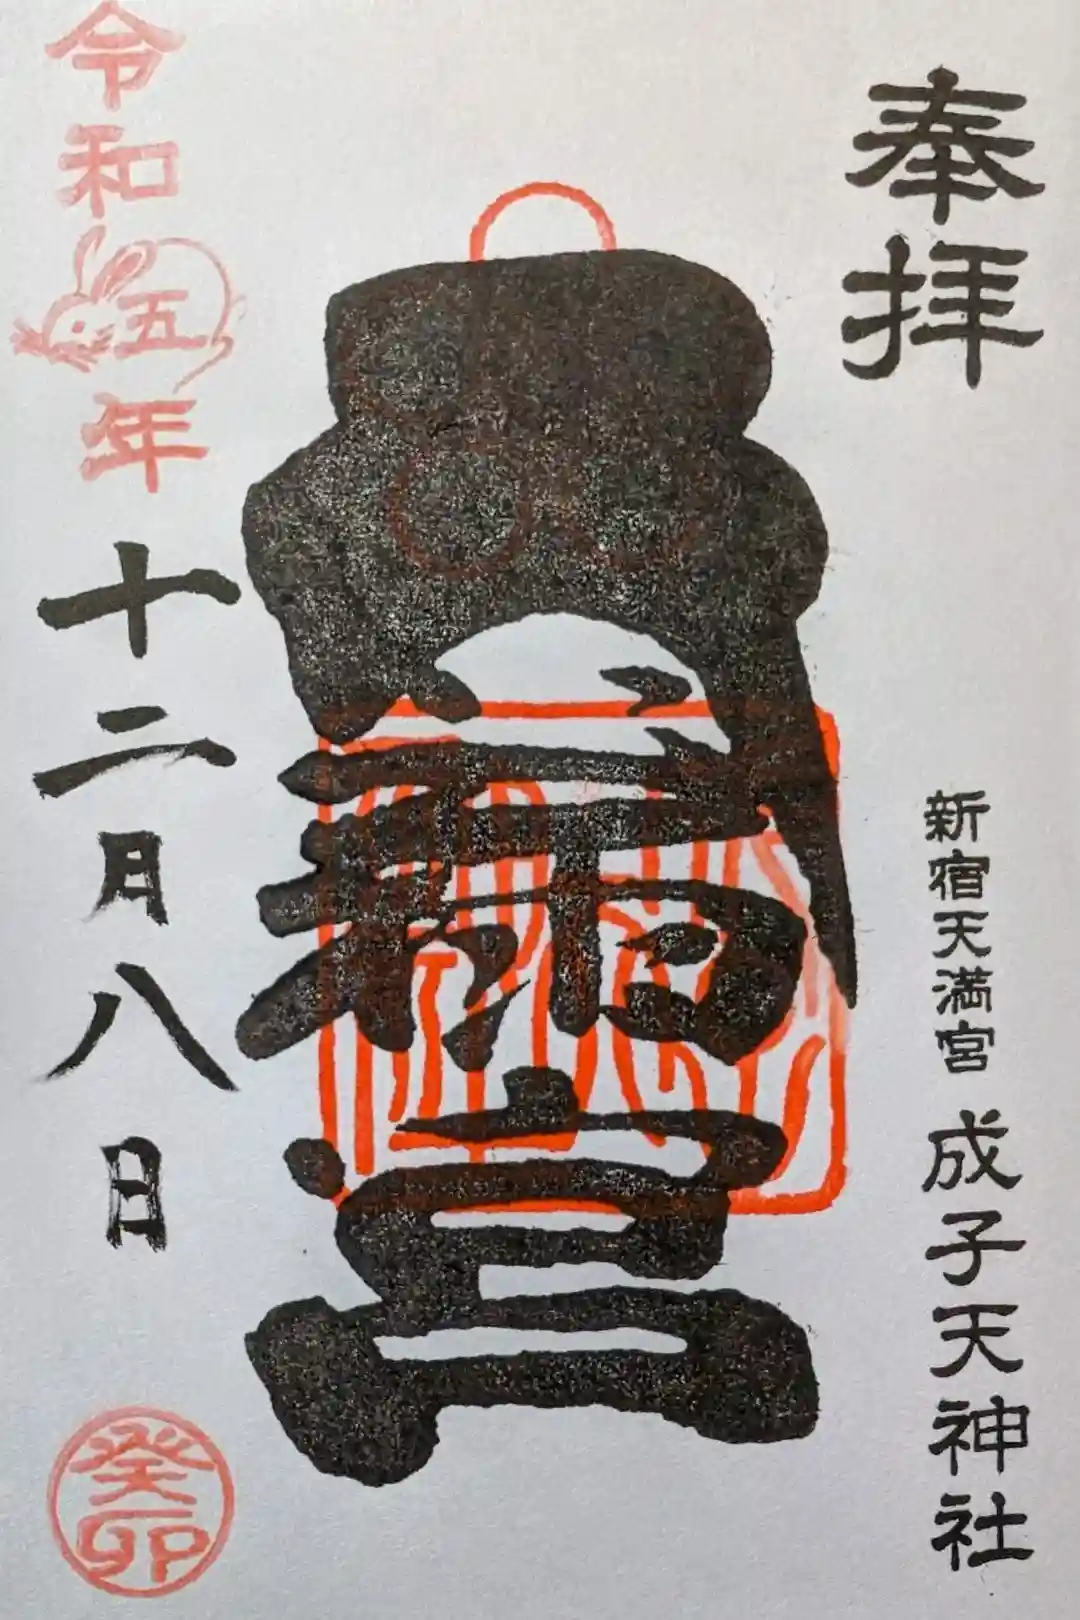 奉拝
新宿天満宮 成子天神社
天満宮
令和五年十二月八日
癸卯